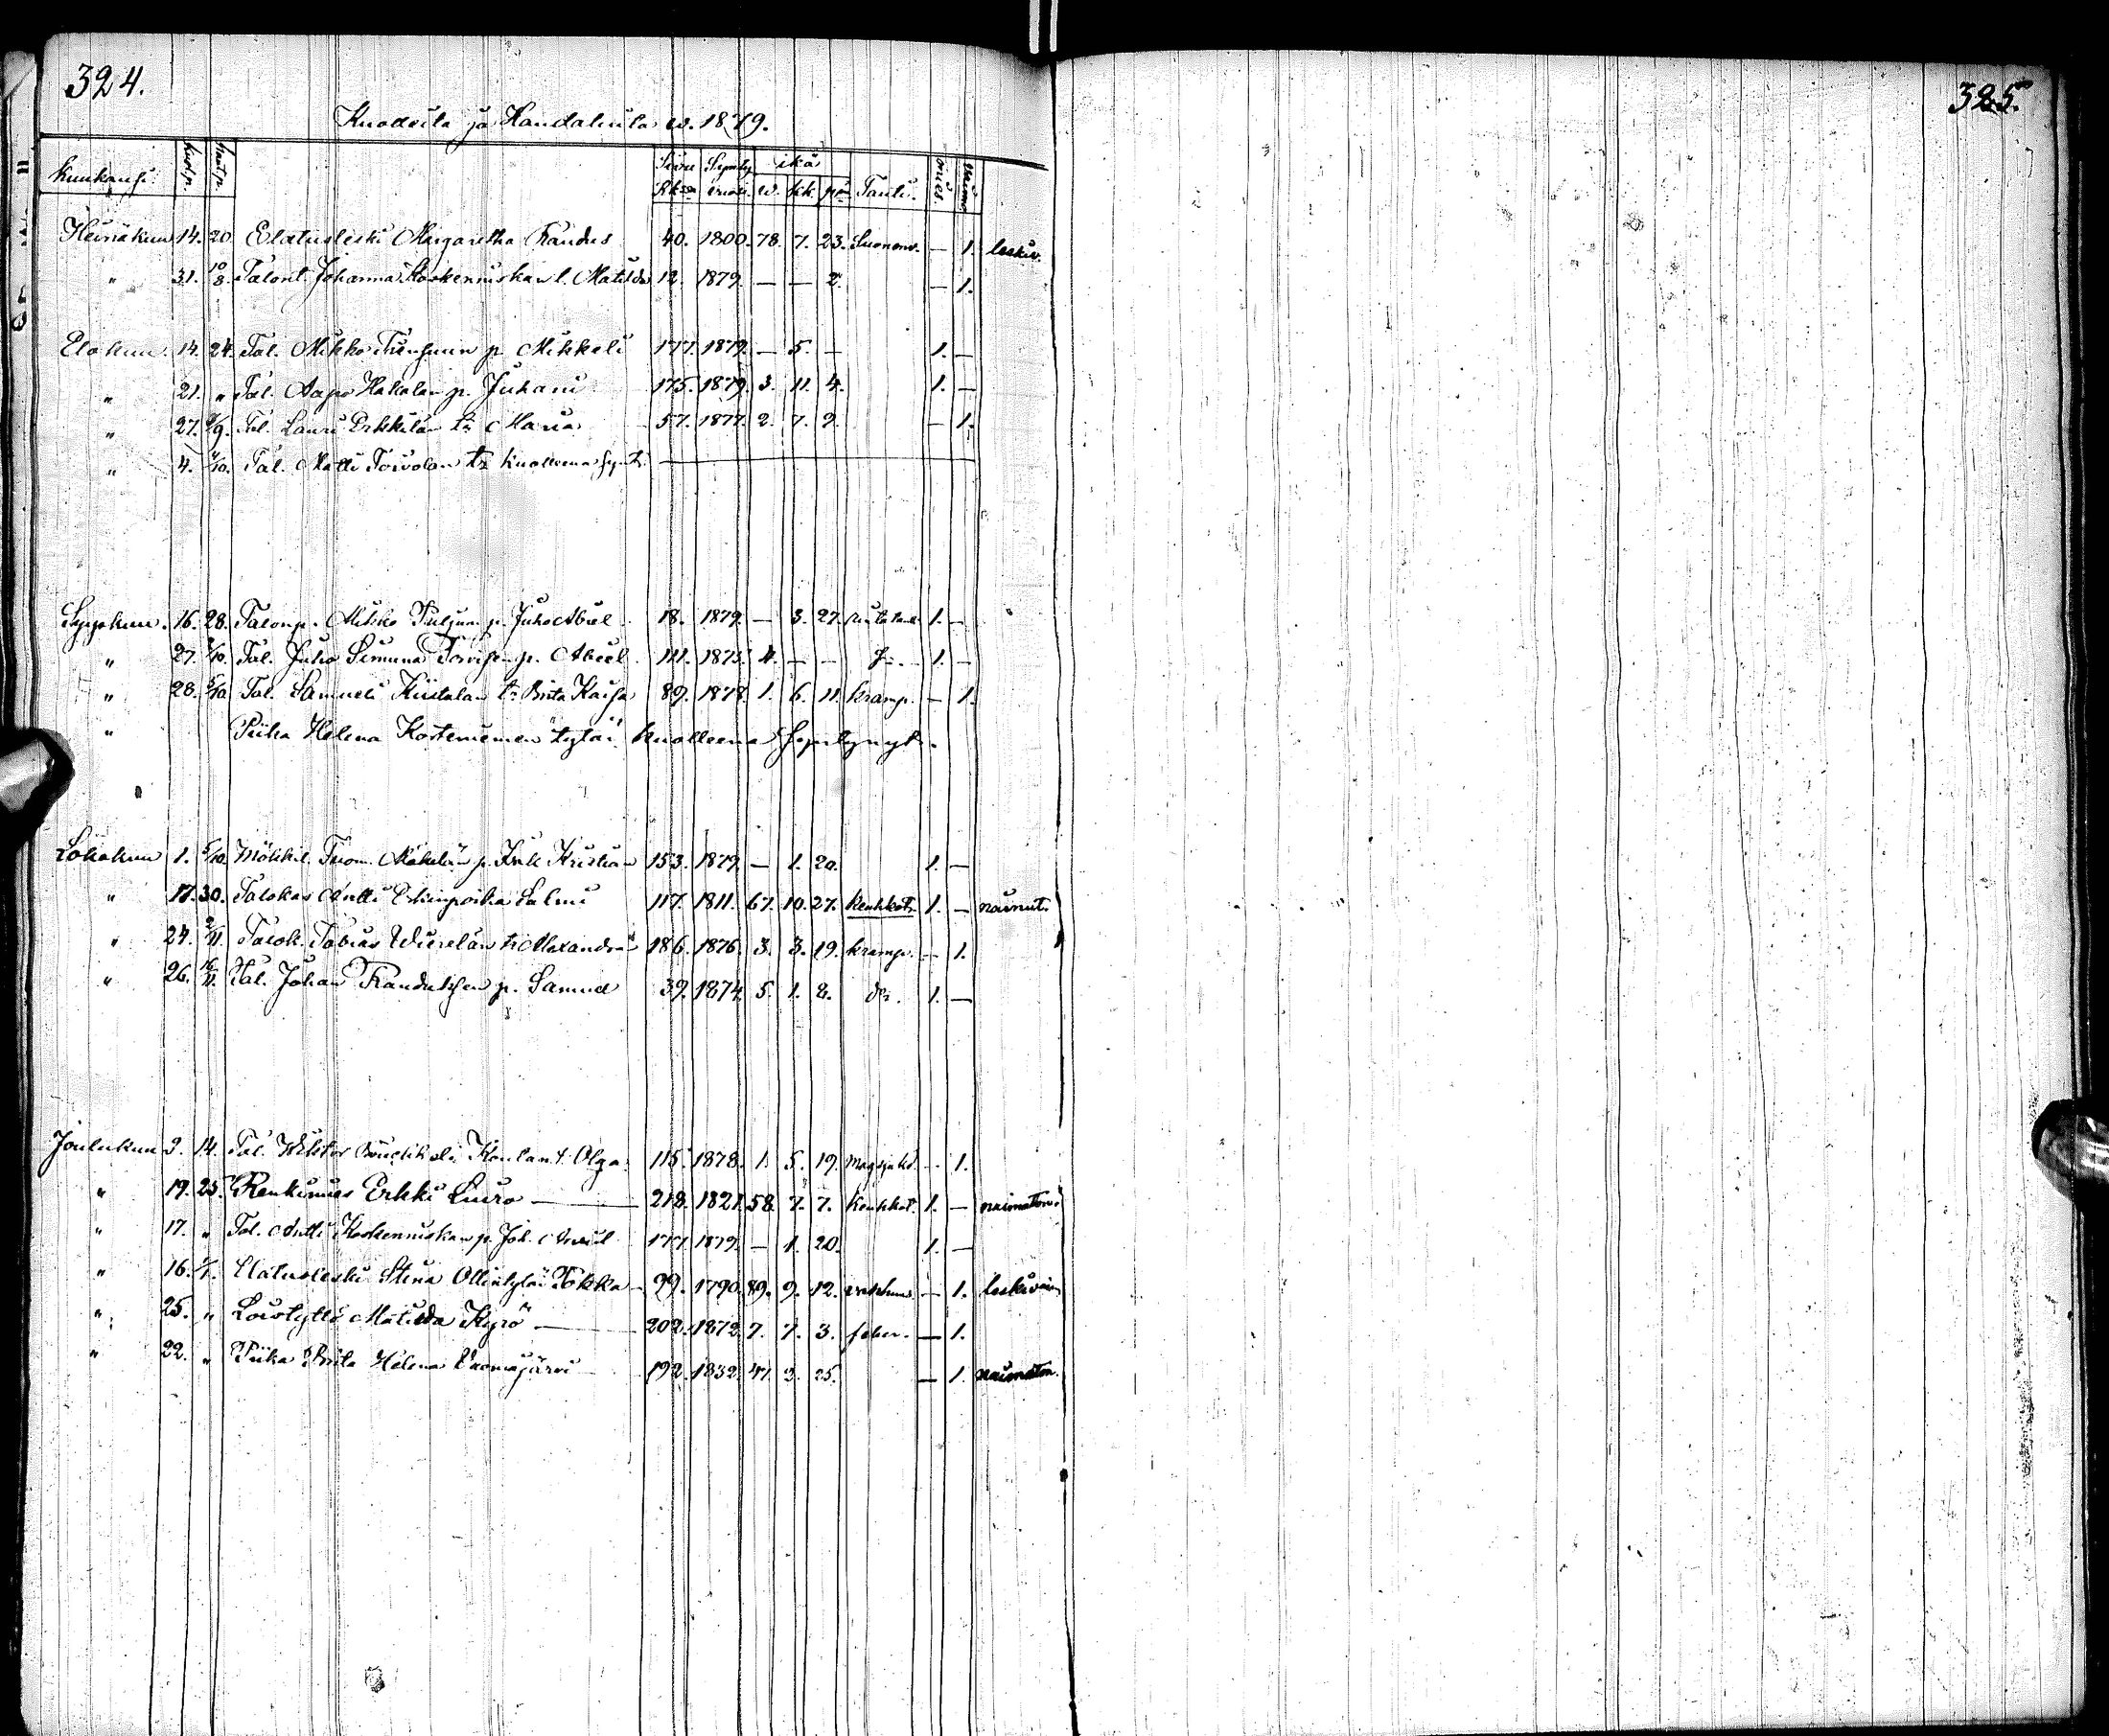 324.
325.
Kuolleita ja Haudatuita w. 1879.
Kuukausi. Kuol.p. Haut.p. Sivu Rk:ssa Synty wuosi. ikä w. kk. pä. Tauti. miesp. waimop.
Heinäkuu 14. 20 Elatusleski Margaretha Fandus 40. 1800. 78. 7. 23. — 1. leskiv.
" 31. 10/8. Talont. Johanna Koskenniskan l. Matilda 12. 1879. — — 2. — 1.
Elokuu 14. 24. Tal. Mikko p. Mikkeli 177. 1879. — 5. — 1. —
" 21. " Tal. Aapo Hakalan p. Juhani 175. 1879. 3. 11. 4. 1. —
" 27. /9. Tal. Lauri Erkkilän tr Maria 57. 1877. 2. 7. 9. — 1.
" 4. /10. Tal. Matti Toivolan tr kuolleena synt.
Syyskuu. 16. 28. Talonp. Mikko Puljun p. Juho Abiel 18. 1879. — 3. 27. 1. —
" 27. /10. Tal. Juho Simuna p. Akiel 111. 1875. 4. — — 1. —
" 28. 5/10 Tal. Samueli Kiistalan tr Brita Kaisa 89. 1878. 1. 6. 11. kramp. — 1.
" Piika Helena Kosteniemen tytär kuolleena syntynyt.
Lokakuu 1. 5/10. Mökkil. Tuom. Mäkelän p. Kristian 153. 1879. — 1. 20. 1. —
" 17. 30. Talokas Antti Erkinpoika Salmi 117. 1811. 67. 10. 27. Keuhkot. 1. — nainut.
" 24. 2/11. Talok. Tobias Wierelän tr Alexandra 186. 1876. 3. 3. 19. kramp. — 1.
" 26. 16/11. Tal. Johan Fanduksen p. Samuel 39. 1874. 5. 1. 8. do. 1. —
Joulukuu 9. 14. Tal. Wiktor Koulan t. Olga 115. 1878. 1. 5. 19. — 1.
" 19. 25. Renkimies Erkki Luiro — 218. 1821. 58. 7. 7. Keuhkot. 1. — naimaton.
" 17. " Tal. Antti Koskenniskan p. Joh. 177. 1879. — 1. 20. 1. —
" 16. Elatusleski Stina Ollintytär Tokka 29. 1790. 89. 9. 12. — 1. leskivaim.
" 25. " Loistyttö Matilda Kyrö — 202. 1872. 7. 7. 3. feber. — 1.
" 22. " Piika Brita Helena Vaomajärvi 192. 1832. 47. 3. 25. — 1. naimaton.